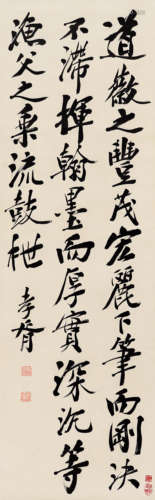 道徽之豐茂宏麗下筆而剛決
不滯揮翰墨而厚實深沉等
漁父之乘流鼓枻
孝胥